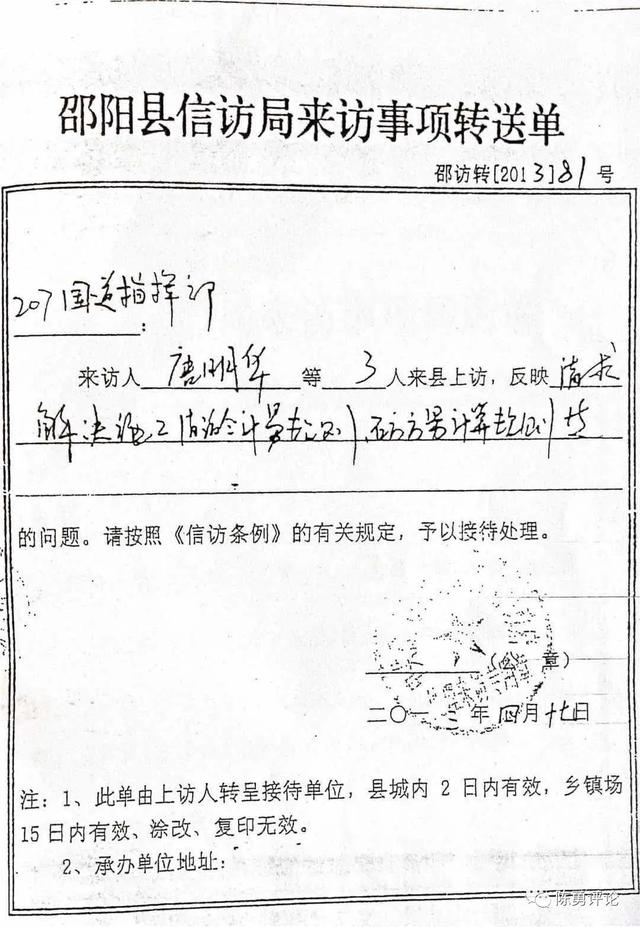 邵阳县信访局来访事项转送单
邵访转[2013]81号
207国道指挥部：
来访人 唐明华 等 3 人来县上访，反映 请求
解决施工
的问题。请按照《信访条例》的有关规定，予以接待处理。
（公 章）
二〇一三年四月十七日
注：1、此单由上访人转呈接待单位，县城内 2 日内有效，乡镇场
15日内有效、涂改、复印无效。
2、承办单位地址：
陈勇评论